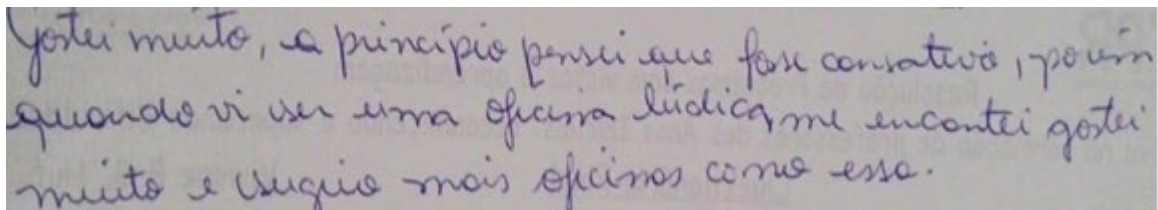 Gostei muito, a princípio pensei que fose cansativo, porém
quando vi ser uma oficina lúdica, me encantei gostei
muito e sugiro mais oficinas como essa.